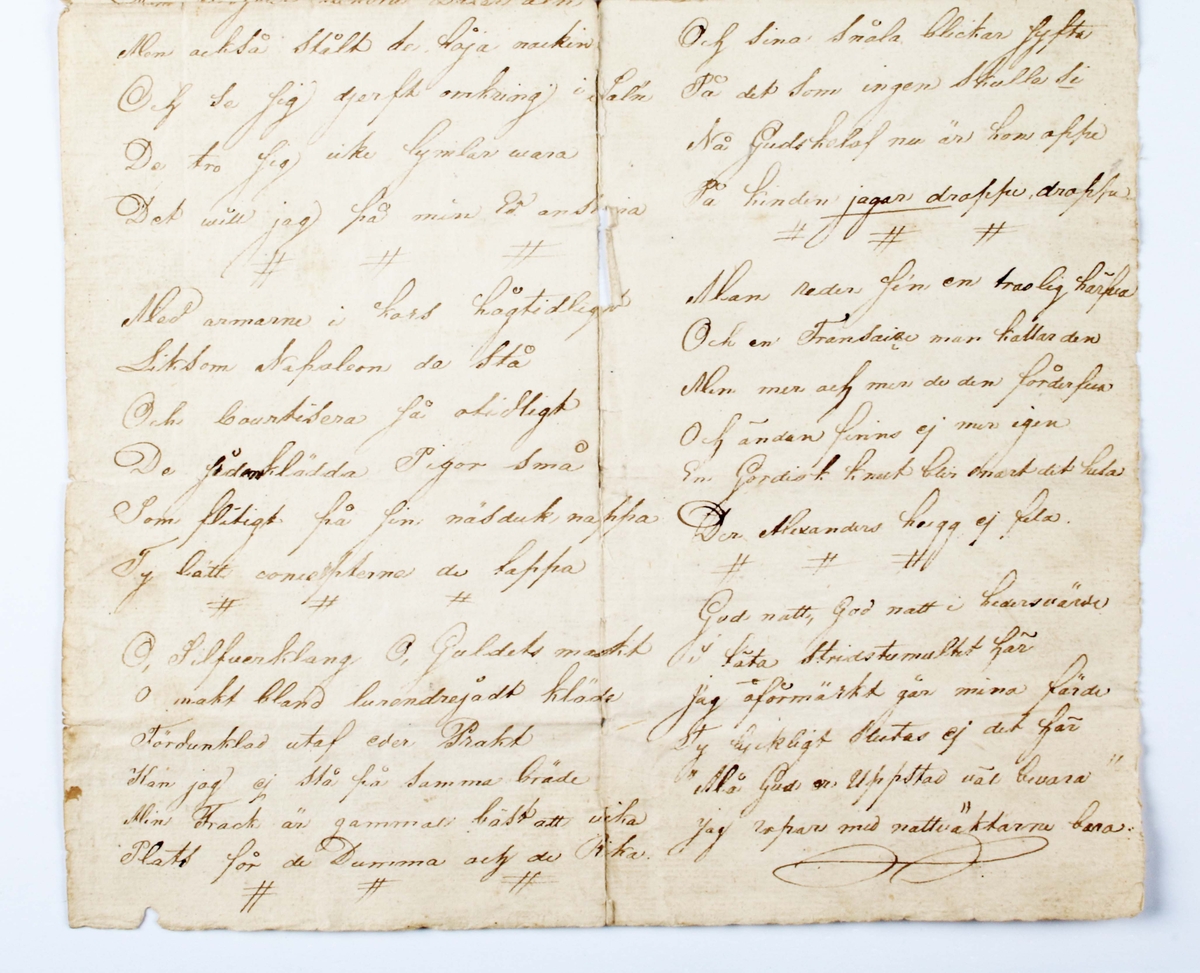 Men också stålt de höja nacken
Och se sig djerft omkring i Saln
De tro sig icke Lymlar wara
Det will jag på min Ed ans
Med armarne i kors högtidligt
Liksom Napoleon de stå
Och Courtisera så otidligt
De sidenklädda Pigor små
Som flitigt på sin näsduk nappa
Ty lätt concepterna de tappa
O, Silfverklang O, Guldets makt
O makt bland lurendrejadt kläde
Fördunklad utaf eder Prakt
Kan jag ej stå på samma bräde
Min Frack är gammal bäst att vika
Plats för de Dumma och de Rika.
Och sina snåla blickar lyfta
På det som ingen skulle se
Nå Gudskelof nu är hon oppe
På kinden jagar droppe, droppe
Man reder sin en trolig härfva
Och en Fransaise man kallar den
Men mer och mer de den förderfva
Och ändan finns ej mer igen
En Gordisk knut blir snart det hela
Der Alexanders hugg ej fela.
God natt, God natt i hedersvärde
I täta stridstumultet här
jag oförmärkt går mina färde
Ty lyckligt slutas ej det här
"Må Gud er Uppstad väl bevara"
Jag ropar med nattväktarne bara.